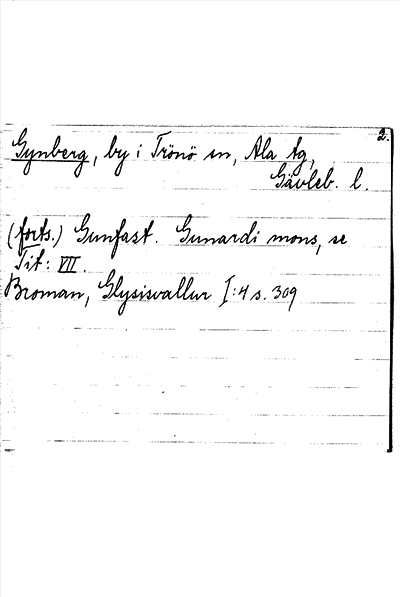 2.
Gynberg, by i Trönö sn, Ala tg,
Gävleb. l.
(forts.) Gunfast. Gunardi mons, se
Tit: VII.
Broman, Glysisvallur I:4 s. 309